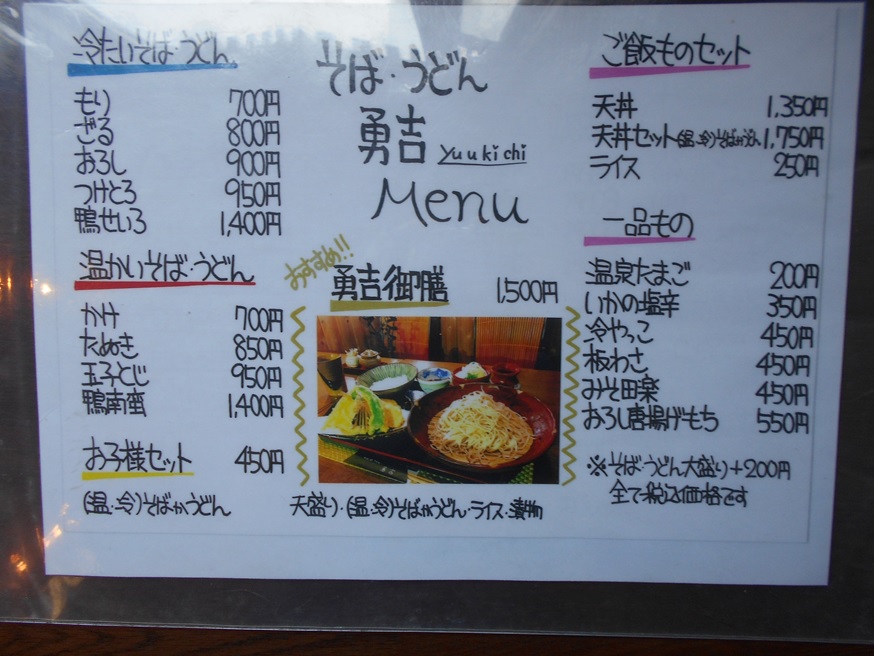 冷たいそば・うどん
もり 700円
ざる 800円
おろし 900円
つけとろ 950円
鴨せいろ 1,400円
温かいそば・うどん
かけ 700円
たぬき 850円
玉子とじ 950円
鴨南蛮 1,400円
お子様セット 450円
(温・冷)そばかうどん
そば・うどん
勇吉 yuukichi
Menu
おすすめ!!
勇吉御膳 1,500円
天盛り・(温・冷)そばかうどん・ライス・
ご飯ものセット
天丼 1,350円
天丼セット(温・冷)そばかうどん 1,750円
ライス 250円
一品もの
温泉たまご 200円
いかの塩辛 350円
冷やっこ 450円
板わさ 450円
みそ田楽 450円
おろし唐揚げもち 550円
※そば・うどん大盛り+200円
全て税込価格です